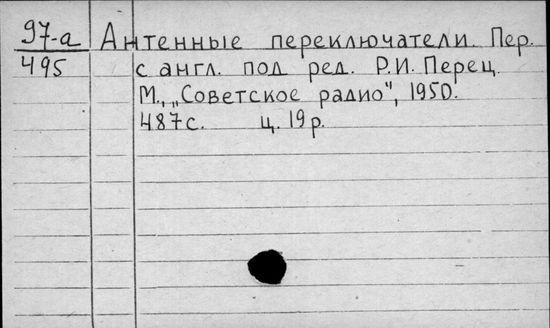 97-а Антенные переключатели. Пер.
495 с англ. под ред. Р.И. Перец.
М., „Советское радио", 1950.
487с. ц. 19р.